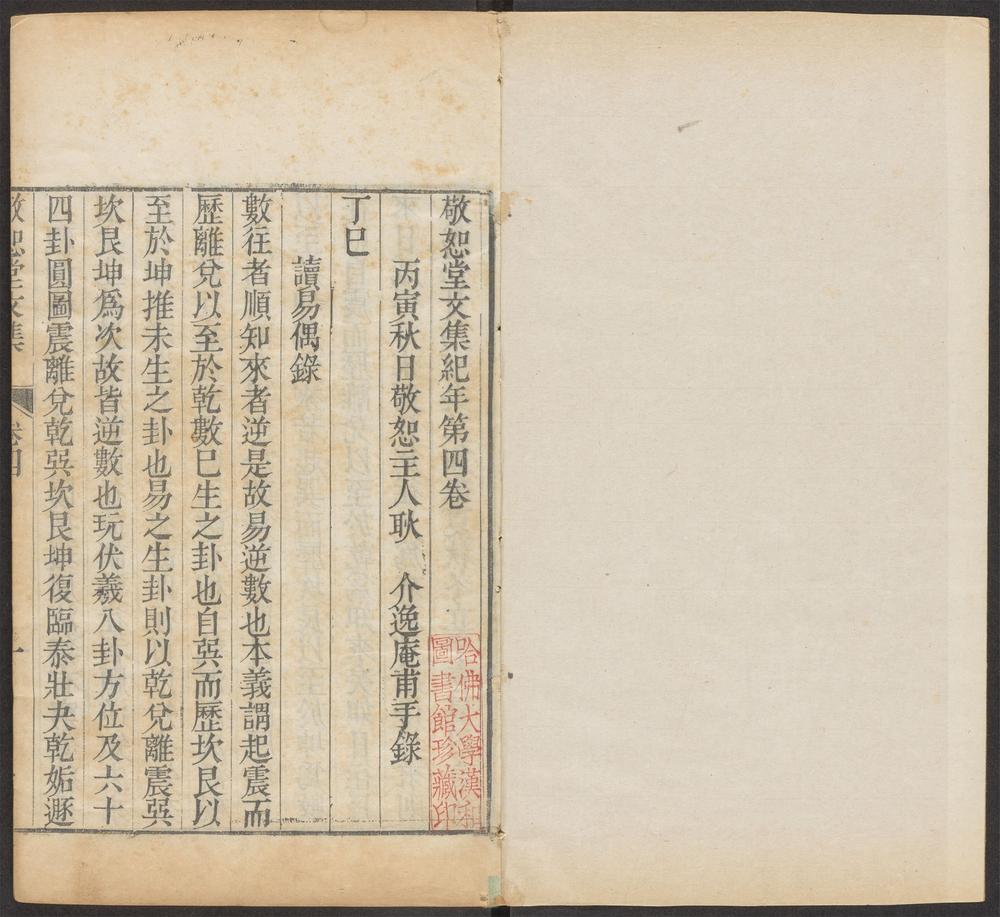 敬恕堂文集紀年第四卷
丙寅秋日敬恕主人耿　介逸庵甫手錄
丁巳
讀易偶錄
數往者順知來者逆是故易逆數也本義謂起震而
歷離兌以至於乾數巳生之卦也自巽而歷坎艮以
至於坤推未生之卦也易之生卦則以乾兌離震巽
坎艮坤爲次故皆逆數也玩伏羲八卦方位及六十
四卦圓圖震離兌乾巽坎艮坤復臨泰壯夬乾姤遯
敬恕堂文集
卷四
一
哈佛大學漢和
圖書館珍藏印